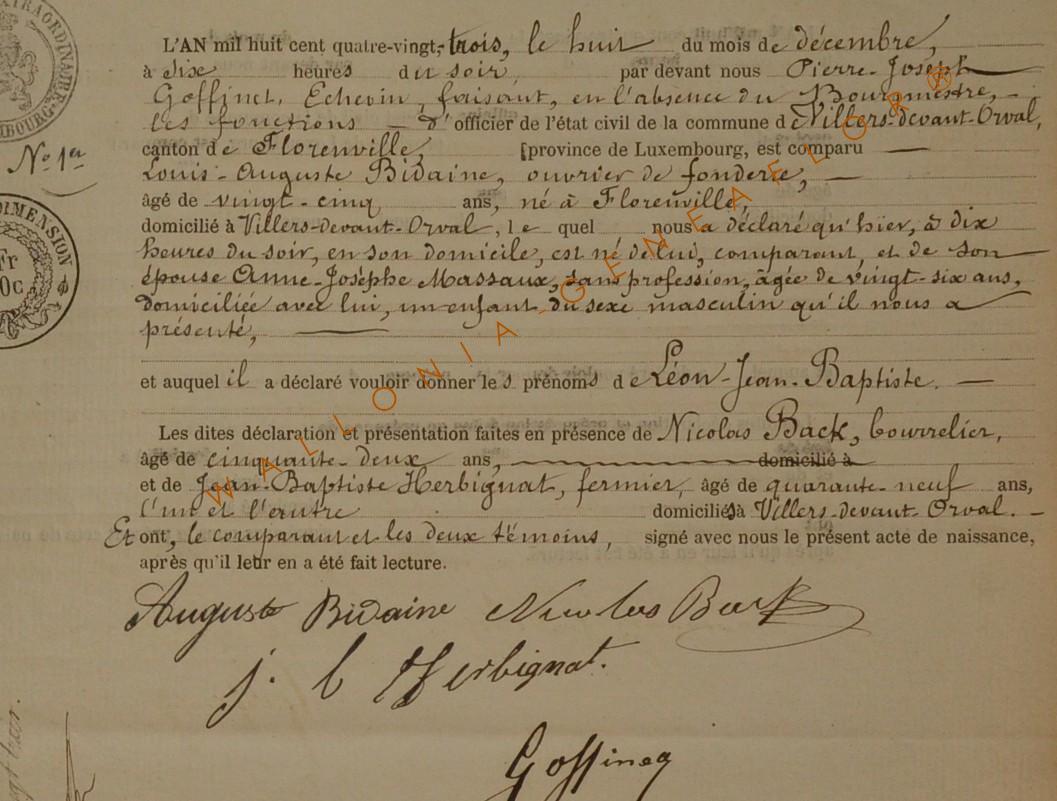 EXTRAORDINAIRE
L'AN mil huit cent quatre-vingt-trois, le huit du mois de décembre,
à six heures du soir, par devant nous Pierre-Joseph
Goffinet, Echevin, faisant, en l'absence du Bourgmestre,
les fonctions d'officier de l'état civil de la commune de Villers-devant-Orval,
canton de Florenville, [province de Luxembourg, est comparu
Louis-Auguste Bidaine, ouvrier de fonderie,
âgé de vingt-cinq ans, né à Florenville,
domicilié à Villers-devant-Orval, le quel nous a déclaré qu'hier, à dix
heures du soir, en son domicile, est né de lui, comparant, et de son
épouse Anne-Josèphe Massaux, sans profession, âgée de vingt-six ans,
domiciliée avec lui, un enfant du sexe masculin qu'il nous a
présenté,
et auquel il a déclaré vouloir donner les prénoms de Léon-Jean-Baptiste.
Les dites déclaration et présentation faites en présence de Nicolas Back, bourrelier,
âgé de cinquante-deux ans, domicilié à
et de Jean-Baptiste Herbignat, fermier, âgé de quarante-neuf ans,
l'un et l'autre domiciliés à Villers-devant-Orval.
Et ont, le comparant et les deux témoins, signé avec nous le présent acte de naissance,
après qu'il leur en a été fait lecture.
Auguste Bidaine Nicolas Back
j. b Herbignat.
Goffinet
No 1er
DIMENSION
Fr
0c
WALLONIA-GENEAFLORA